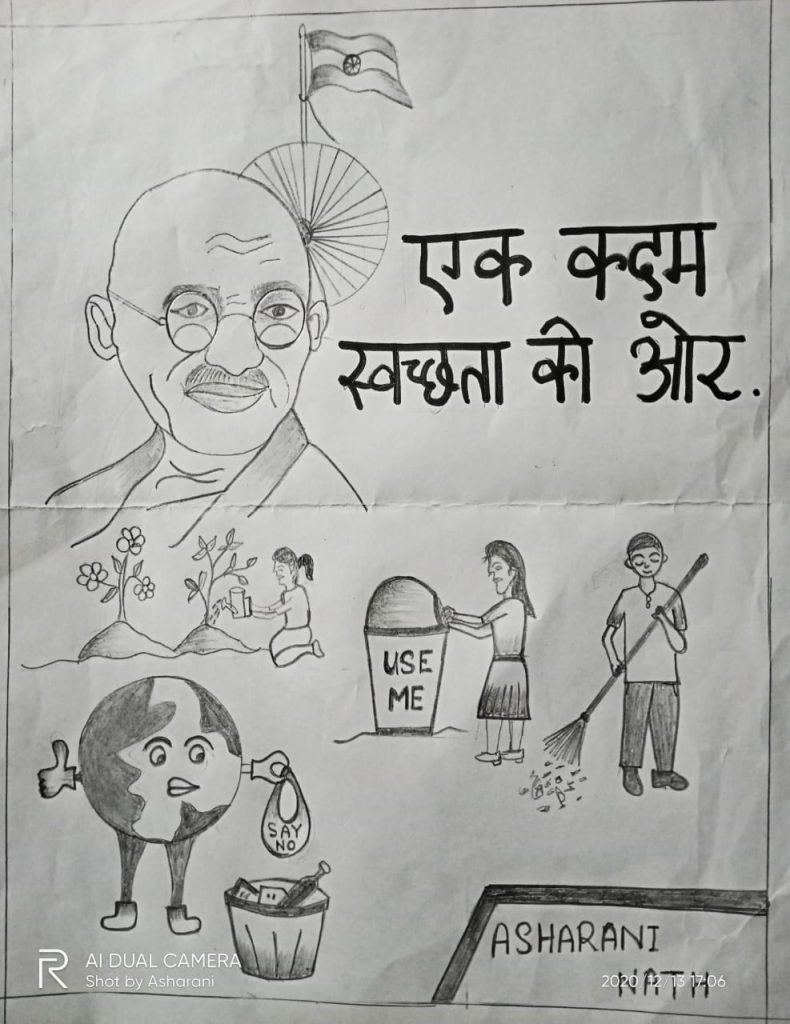 एक कदम
स्वच्छता की ओर.
USE
ME
SAY
NO
ASHARANI
NATH
R AI DUAL CAMERA
Shot by Asharani
2020/12/13 17:06